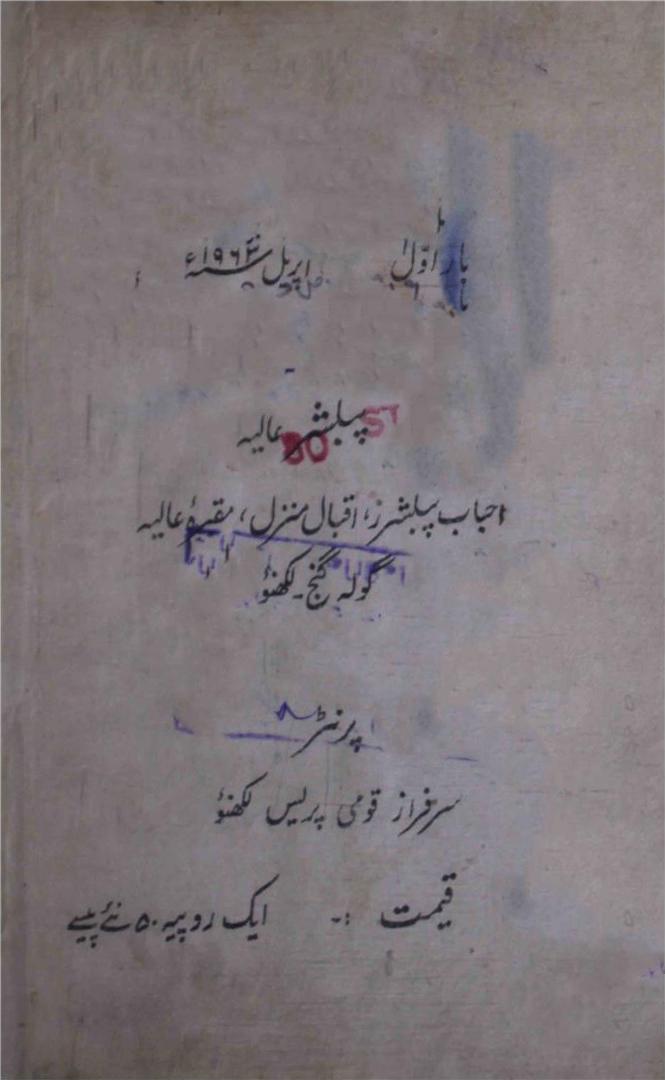 بار اوّل اپریل ۱۹۶۳ء
پبلشر عالیہ
احباب پبلشرز، اقبال منزل، مقبرۂ عالیہ
گولہ گنج۔ لکھنؤ
پرنٹر
سرفراز قومی پریس لکھنؤ
قیمت :۔ ایک روپیہ ۵۰ نئے پیسے